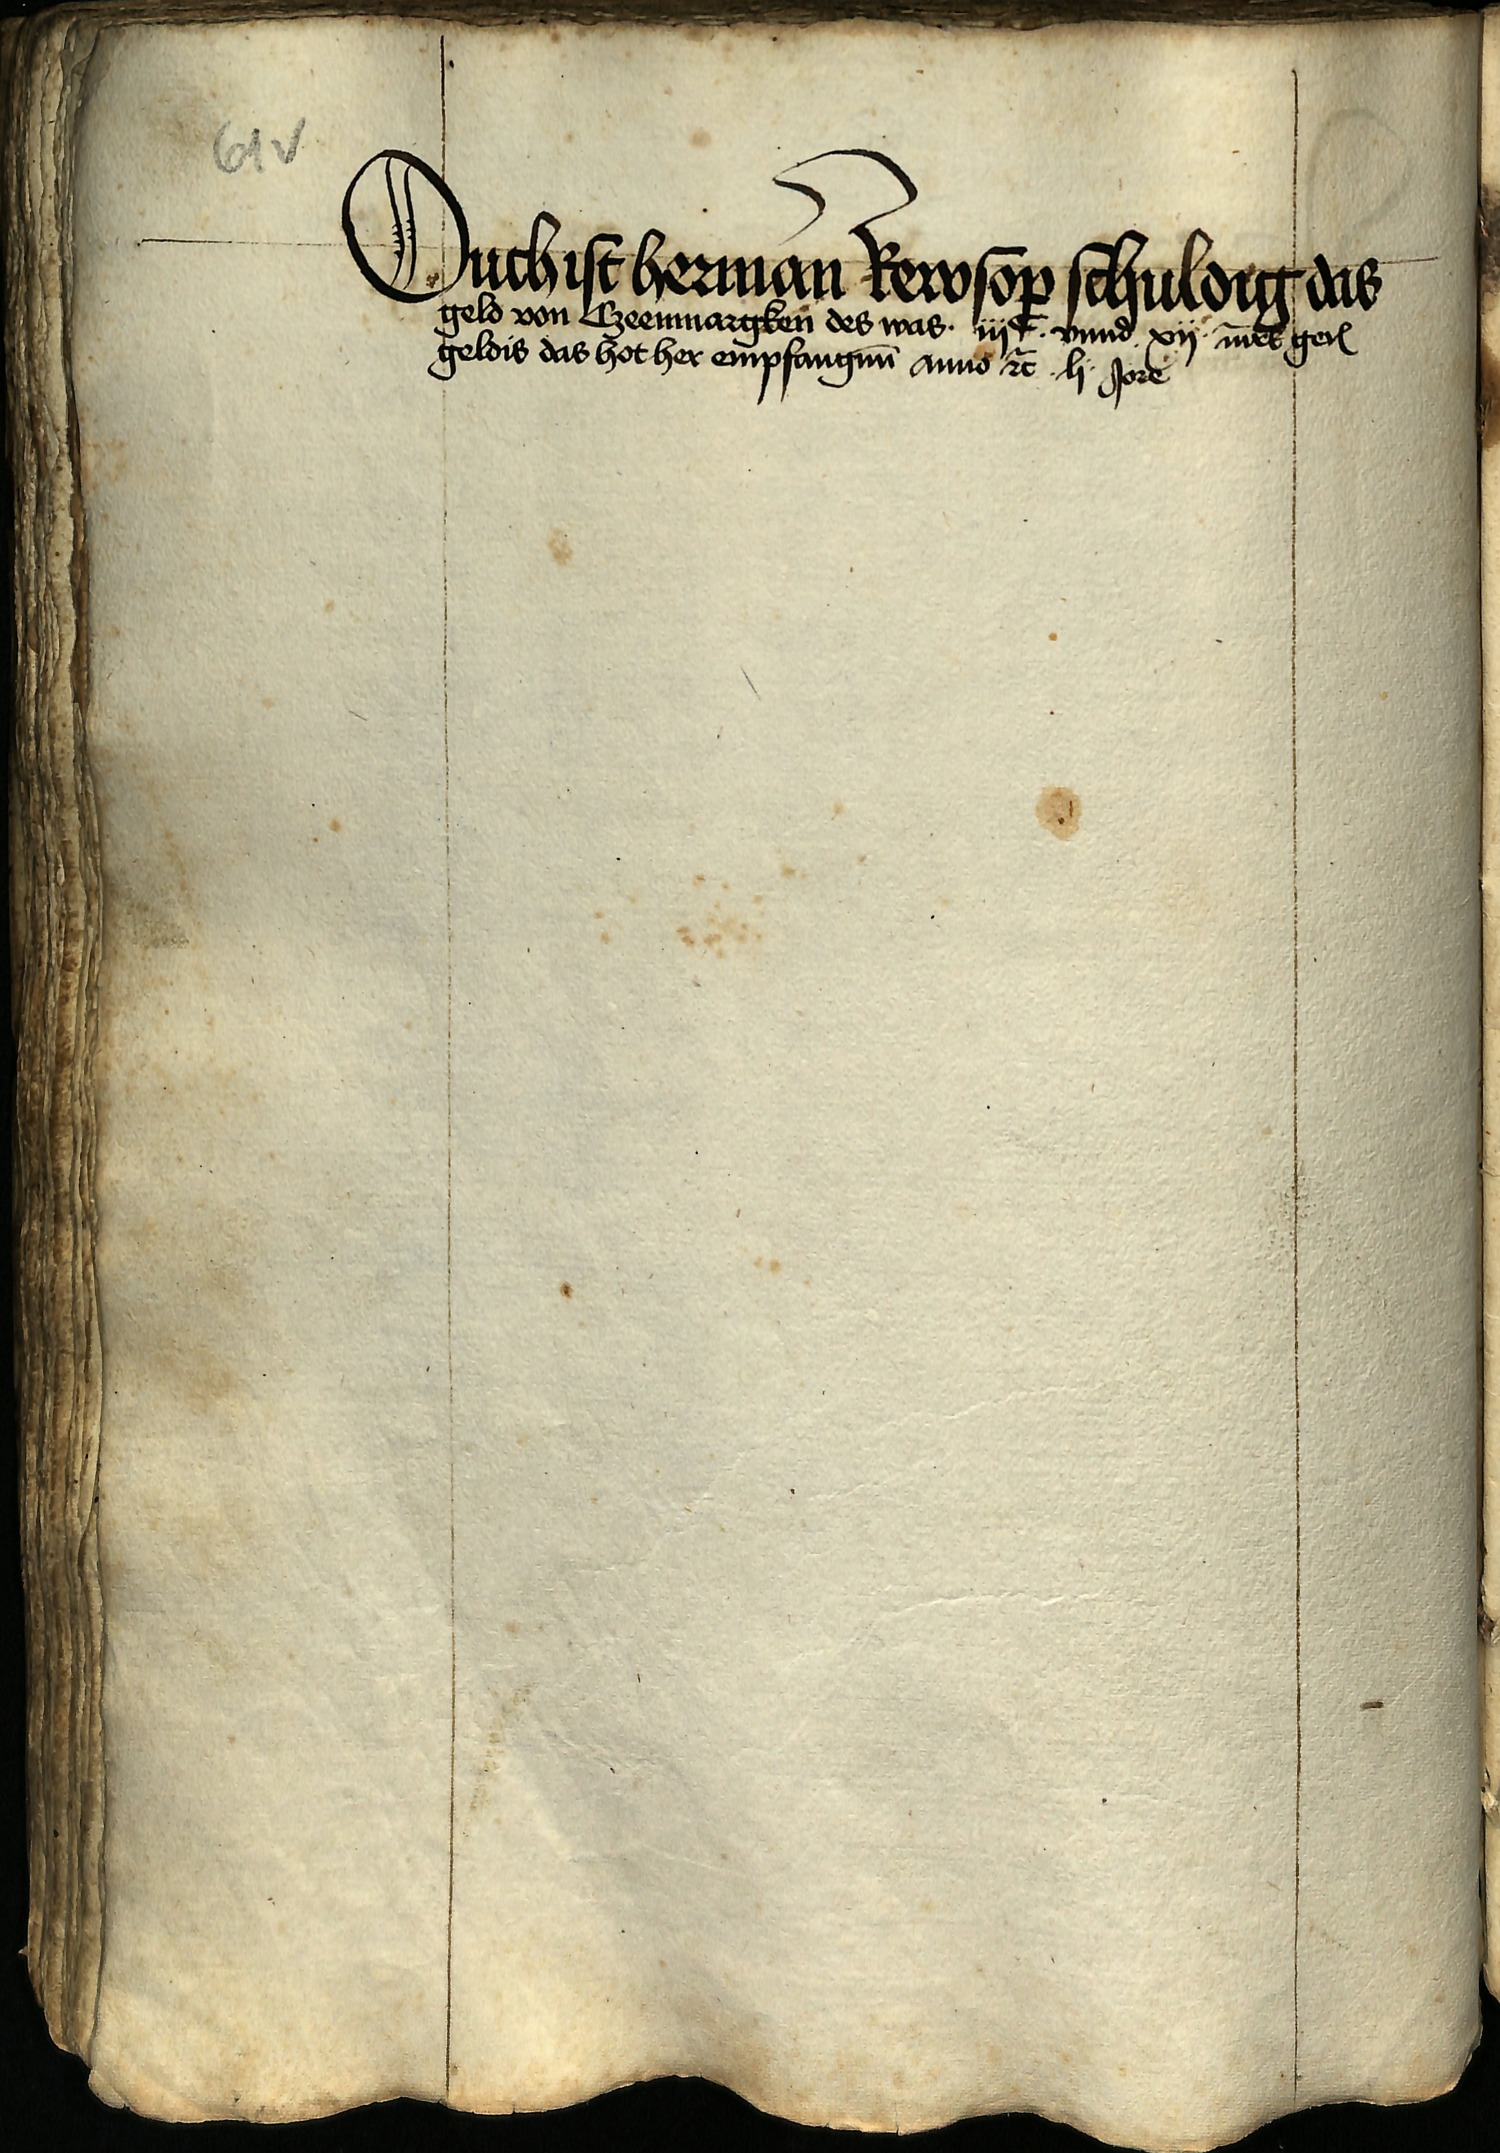 61v
Ouch ist herman Rewsop schuldig das
geld von Czeenmargken des was · iij C · vnnd · xij · mrc gerẜ
geldis das hot her empfangen̄ anno rc̄ · lj · Jore